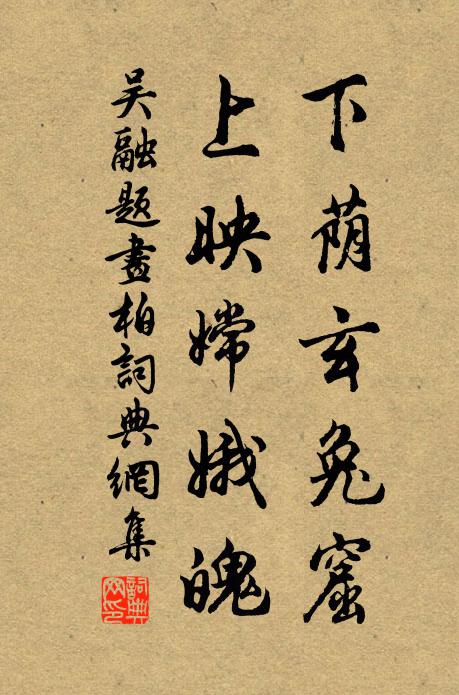 下荫玄兔窟
上映嫦娥魄
吴融题畫柏詞典網集
詞典网印